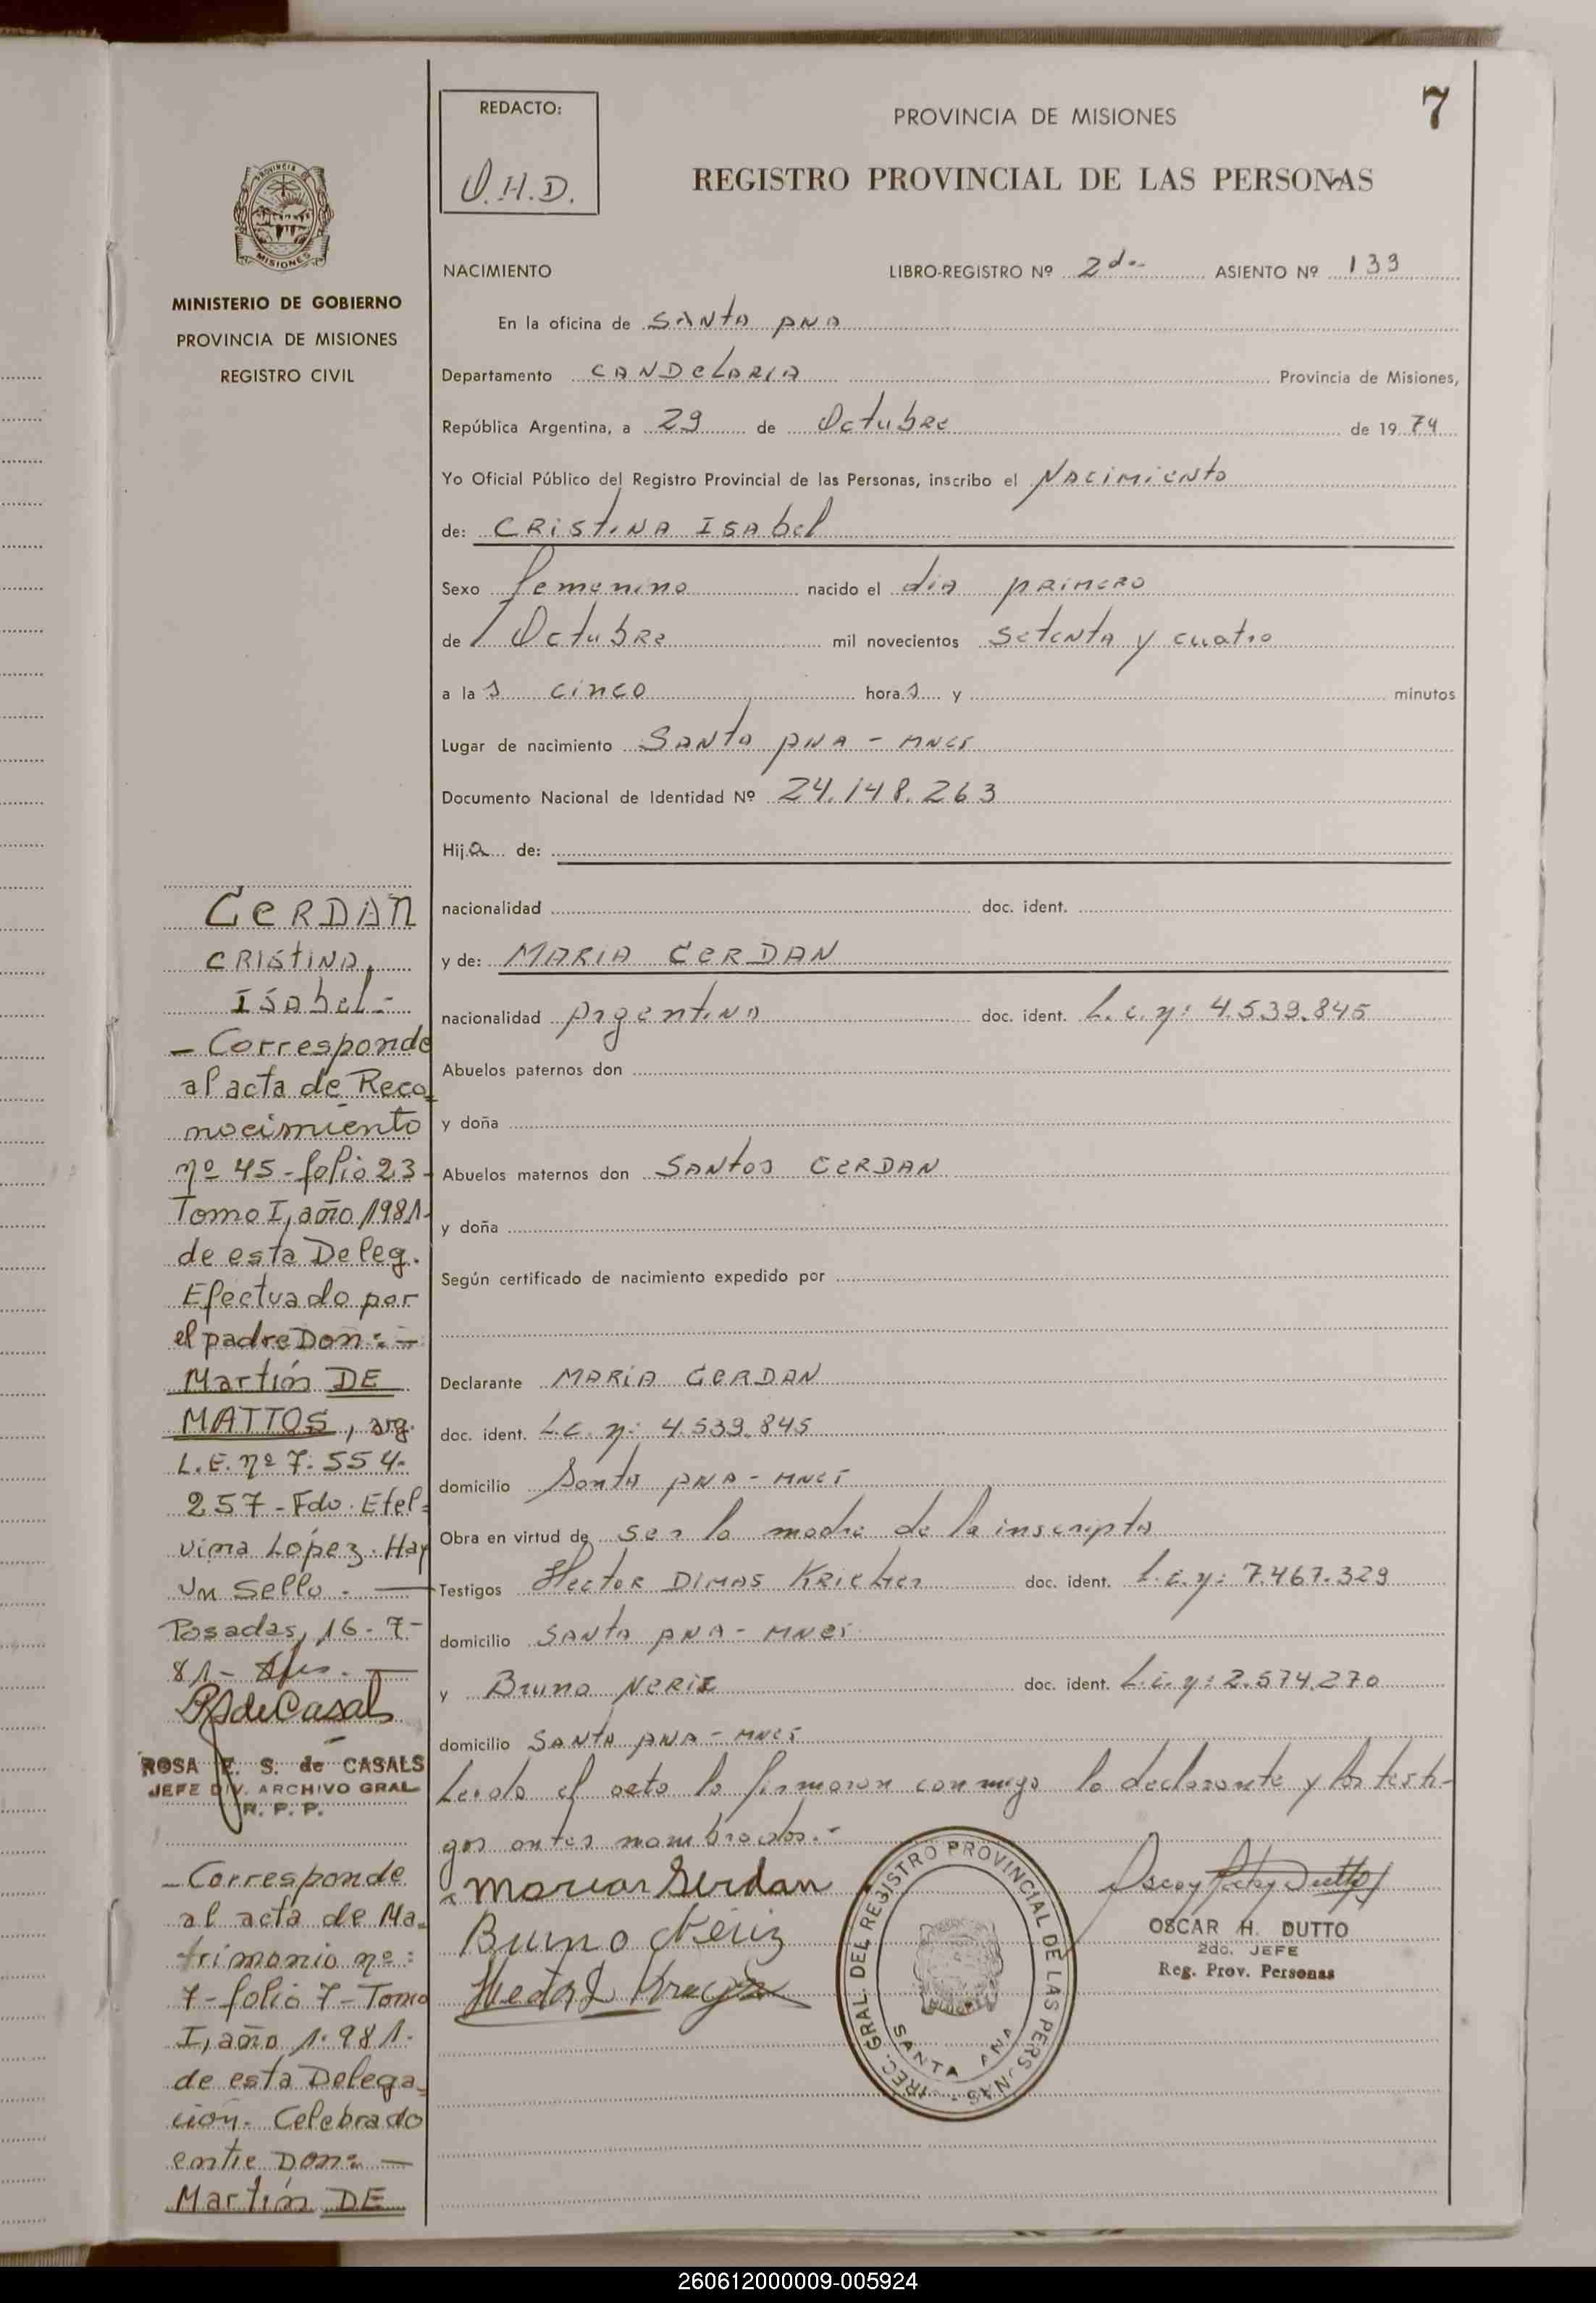 7
REDACTO:
O.H.D.
PROVINCIA DE MISIONES
REGISTRO PROVINCIAL DE LAS PERSONAS
PROVINCIA DE
MISIONES
MINISTERIO DE GOBIERNO
PROVINCIA DE MISIONES
REGISTRO CIVIL
NACIMIENTO LIBRO-REGISTRO Nº 2do ASIENTO Nº 133
En la oficina de SANTA ANA
Departamento CANDELARIA Provincia de Misiones,
República Argentina, a 29 de Octubre de 1974
Yo Oficial Público del Registro Provincial de las Personas, inscribo el Nacimiento
de: CRISTINA ISAbel
Sexo femenino nacido el dia primero
de Octubre mil novecientos setenta y cuatro
a las cinco horas y minutos
Lugar de nacimiento SANTA ANA - MNES
Documento Nacional de Identidad Nº 24.148.263
Hija de:
nacionalidad doc. ident.
y de: MARIA CERDAN
nacionalidad Argentina doc. ident. L.C. nº: 4.539.845
Abuelos paternos don
y doña
Abuelos maternos don SANTOS CERDAN
y doña
Según certificado de nacimiento expedido por
Declarante MARIA CERDAN
doc. ident. L.C. nº: 4.539.845
domicilio Santa ANA - MNES
Obra en virtud de ser la madre de la inscripta
Testigos Hector DIMAS doc. ident. L.E. nº: 7.467.329
domicilio SANTA ANA - MNES
y Bruno NERIZ doc. ident. L.E. nº: 2.574.270
domicilio SANTA ANA - MNES
Leida el acta la firmaron conmigo la declarante y los testi-
gos antes nombrados.-
Maria Serdan
Bruno Neriz
OSCAR H. DUTTO
2do. JEFE
Reg. Prov. Personas
DIREC. GRAL. DEL REGISTRO PROVINCIAL DE LAS PERSONAS
SANTA ANA
CERDAN
CRISTINA
ISAbel-
- Corresponde
al acta de Reco-
nocimiento
nº 45 - folio 23-
Tomo I, año 1981-
de esta Deleg.
Efectuado por
el padre Don: -
Martín DE
MATTOS, arg.
L.E. nº 7.554.
257 - Fdo. Etel-
vina López. Hay
un sello. -
Posadas, 16-7-
81-
ROSA E. S. de CASALS
JEFE DIV. ARCHIVO GRAL
R. P. P.
- Corresponde
al acta de Ma-
trimonio nº:
7 - folio 7 - Tomo
I, año 1.981.
de esta Delega-
ción. Celebrado
entre Don: -
Martín DE
260612000009-005924